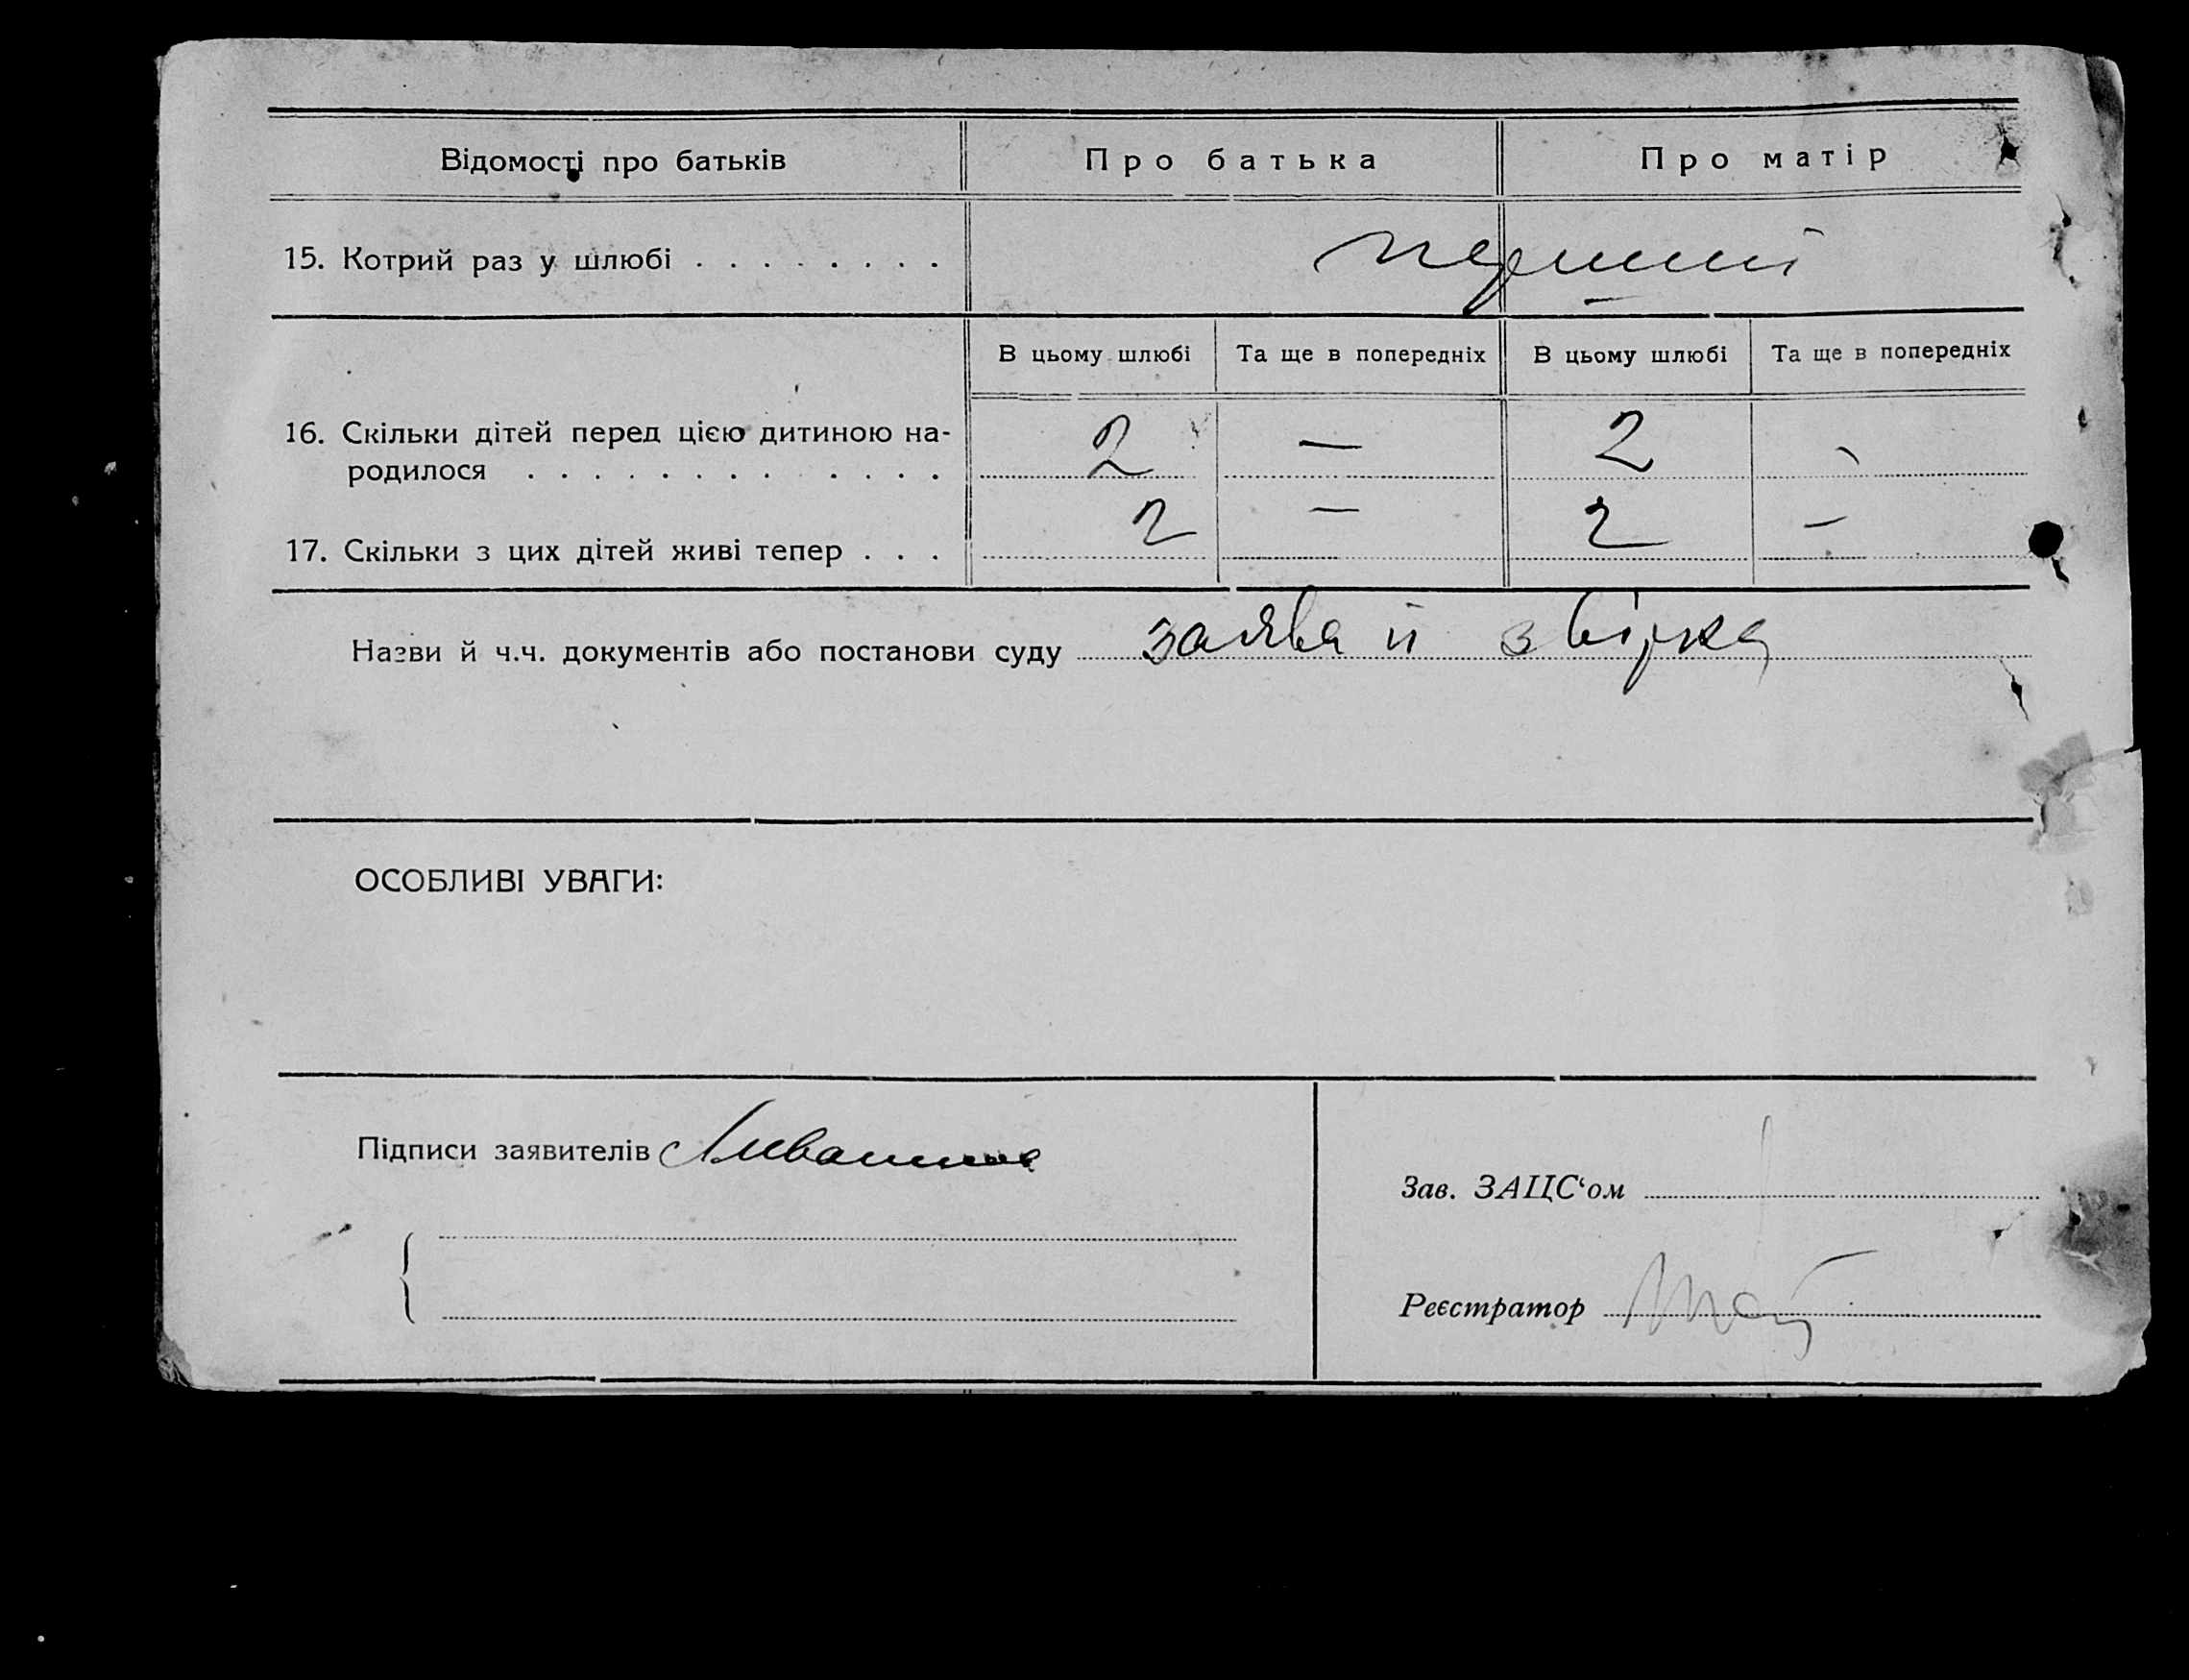 Відомості про батьків Про батька Про матір
15. Котрий раз у шлюбі . . . . . . . . перший
В цьому шлюбі Та ще в попередніх В цьому шлюбі Та ще в попередніх
16. Скільки дітей перед цією дитиною на-
родилося . . . . . . . . . . . . . 2 — 2 -
17. Скільки з цих дітей живі тепер . . . 2 — 2 —
Назви й ч.ч. документів або постанови суду заява й звірка
ОСОБЛИВІ УВАГИ:
Підписи заявителів
Зав. ЗАЦС‘ом
Реєстратор